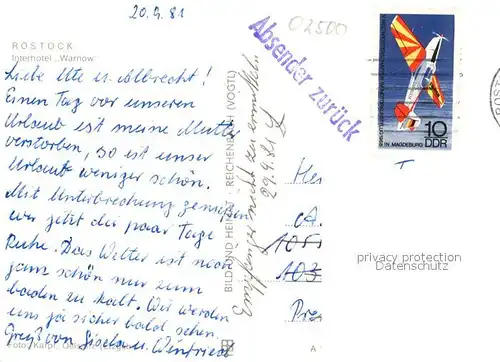 20.9.81
ROSTOCK
Interhotel „Warnow"
Liebe Ute u. Albrecht!
Einen Tag vor unseren
Urlaub ist meine Mutter
verstorben, so ist unser
Urlaub weniger schön.
Mit Unterbrechung genießen
wir jetzt die paar Tage
Ruhe. Das Wetter ist noch
ganz schön nur zum
baden zu kalt. Wir werden
uns ja sicher bald sehen.
Gruß von Gisela u. Winfried
BILD UND HEIMAT REICHENBACH (VOGTL)
Empfänger nicht zu ermitteln
29.9.81
Absender zurück
02500
10
DDR
IN MAGDEBURG
He
A.
1051
103
Pre
privacy protection
Datenschutz
A 1